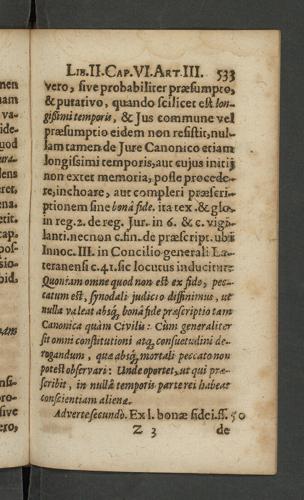 Lib.II.Cap.VI.Art.III. 533
vero, sive probabiliter præsumpto,
& putativo, quando scilicet est lon-
gissimi temporis, & Jus commune vel
præsumptio eidem non resistit, nul-
lam tamen de Jure Canonico etiam
longissimi temporis, aut cujus initij
non extet memoria, posse procede-
re, inchoare, aut compleri præscri-
ptionem sine bonâ fide. ita tex. & glos.
in reg. 2. de reg. Jur. in 6. & c. vigi-
lanti. necnon c. fin. de præscript. ubi
Innoc. III. in Concilio generali La-
teranensi c. 41. sic locutus inducitur:
Quoniam omne quod non est ex fide, pec-
catum est, synodali judicio diffinimus, ut
nulla valeat absq, bonâ fide præscriptio tam
Canonica quàm Civilis: Cùm generaliter
sit omni constitutioni atq, consuetudini de-
rogandum, quæ absq, mortali peccato non
potest observari: Unde oportet, ut qui præ-
scribit, in nullâ temporis parte rei habeat
conscientiam alienæ.
Adverte secundò. Ex l. bonæ fidei. ff. 50
Z 3 de